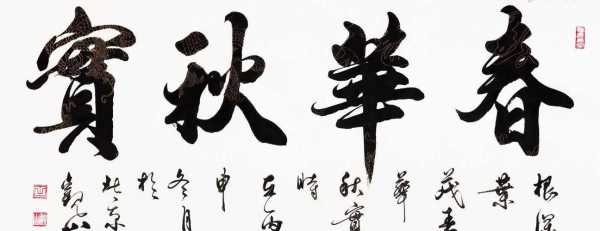 春華秋實
根深
葉
茂春
華
秋實
時
在丙
申
冬月
於
北京
觀山